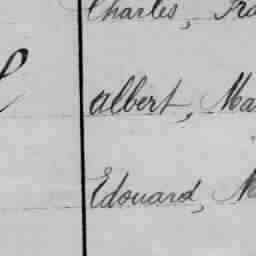 Charles, Fra
Albert, Ma
Edouard, M